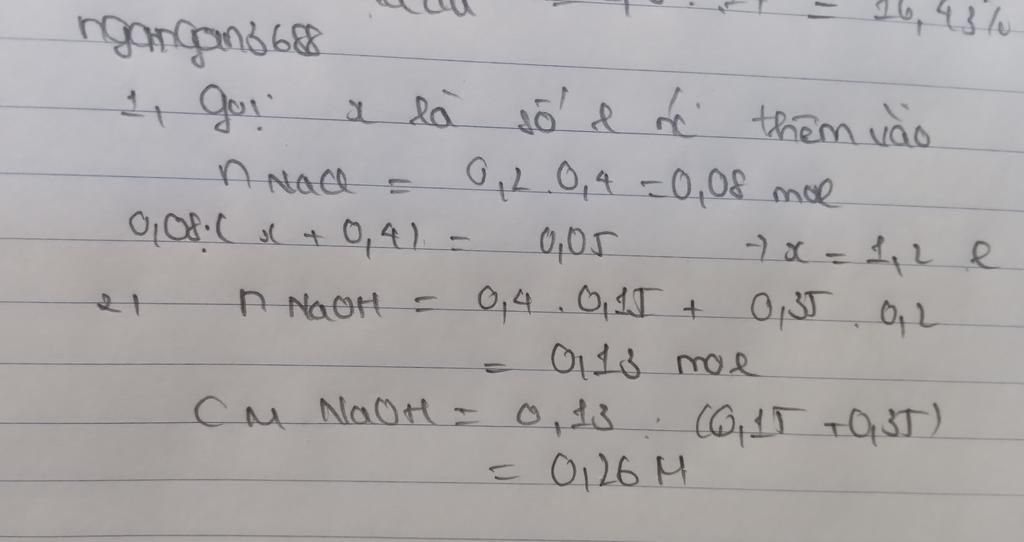 = 16,43%
ngangan3688
1, Gọi x là số l nc thêm vào
n NaCl = 0,2 . 0,4 = 0,08 mol
0,08 : ( x + 0,4 ) = 0,05 → x = 1,2 l
2, n NaOH = 0,4 . 0,15 + 0,35 . 0,2
= 0,13 mol
CM NaOH = 0,13 : (0,15 + 0,35)
= 0,26 M